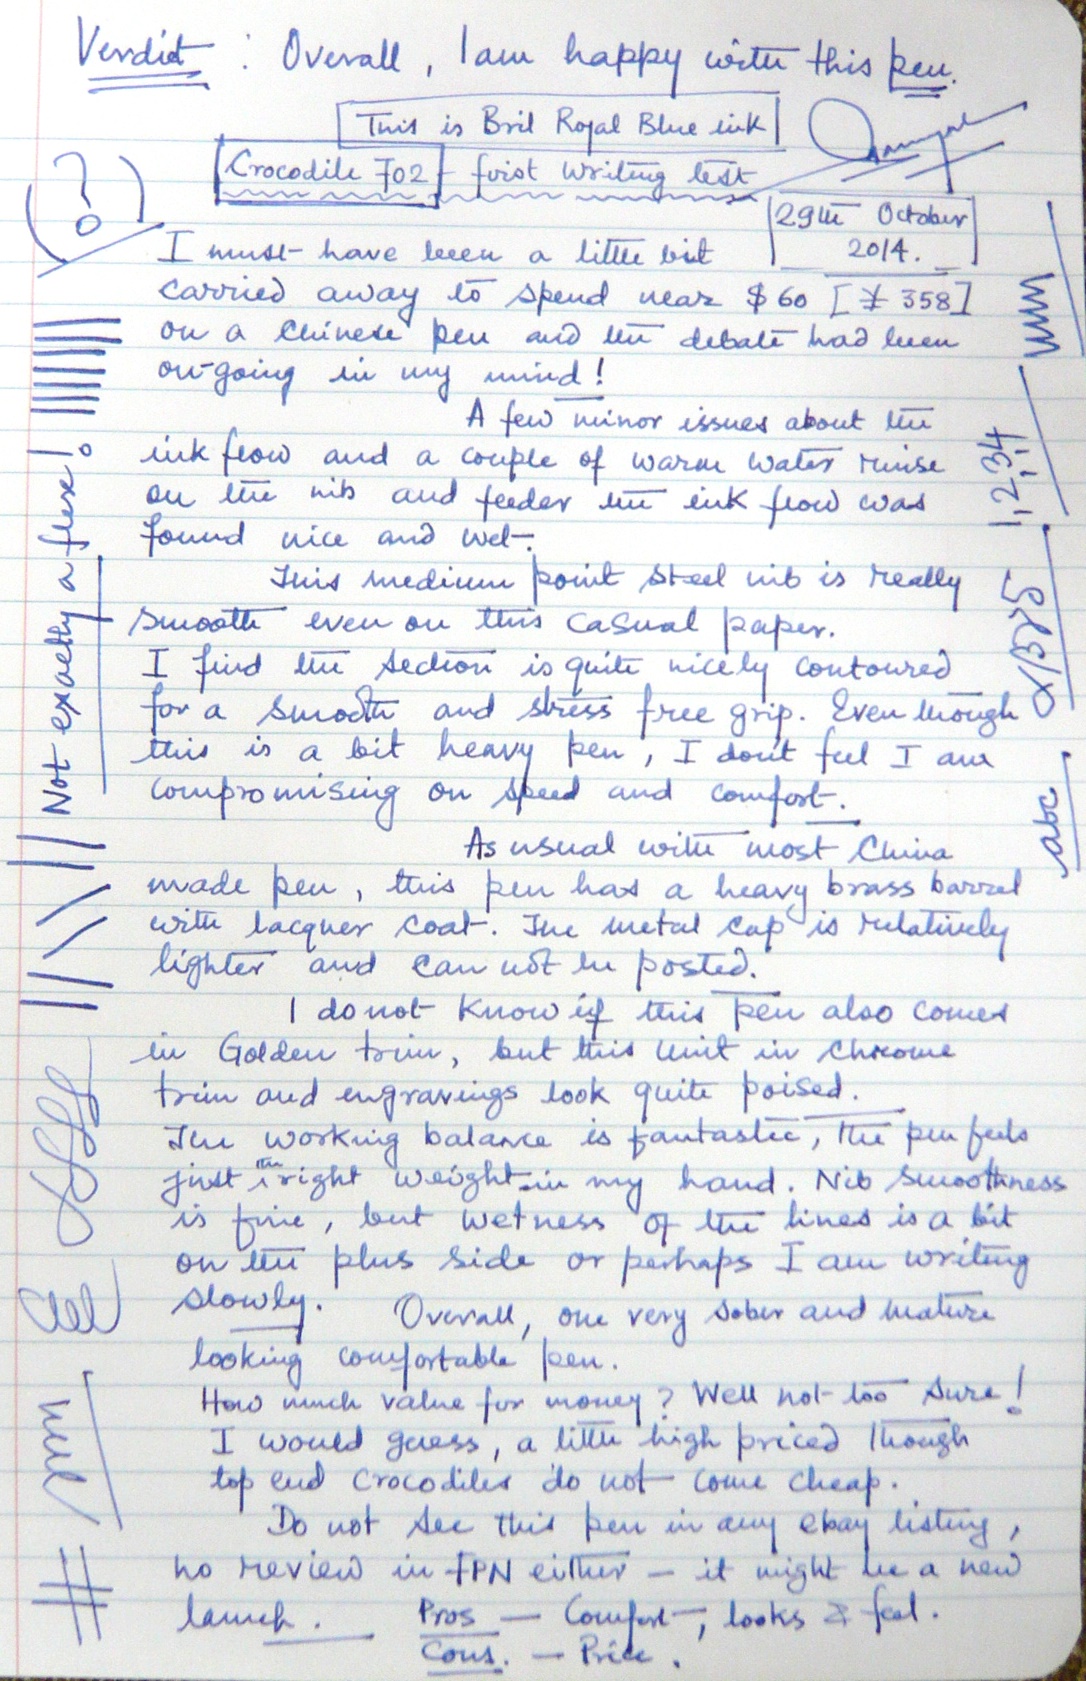 Verdict : Overall, I am happy with this pen.
This is Bril Royal Blue ink
Crocodile 702 - first writing test
29th October
2014.
(?)
I must have been a little bit
carried away to spend near $60 [¥ 358]
on a Chinese pen and the debate had been
on-going in my mind!
A few minor issues about the
ink flow and a couple of warm water rinse
on the nib and feeder the ink flow was
found nice and wet.
This medium point steel nib is really
smooth even on this casual paper.
I find the section is quite nicely contoured
for a smooth and stress free grip. Even though
this is a bit heavy pen, I don't feel I am
compromising on speed and comfort.
As usual with most China
made pen, this pen has a heavy brass barrel
with lacquer coat. The metal cap is relatively
lighter and can not be posted.
I do not know if this pen also comes
in Golden trim, but this unit in chrome
trim and engravings look quite poised.
The working balance is fantastic, the pen feels
just the right weight in my hand. Nib smoothness
is fine, but wetness of the lines is a bit
on the plus side or perhaps I am writing
slowly. Overall, one very sober and mature
looking comfortable pen.
How much value for money? Well not too sure!
I would guess, a little high priced though
top end crocodiles do not come cheap.
Do not see this pen in any ebay listing,
no review in FPN either - it might be a new
launch. Pros - Comfort, looks & feel.
Cons. - Price.
Not exactly a flexe!
1,2,3,4
αβγδ
abc
#